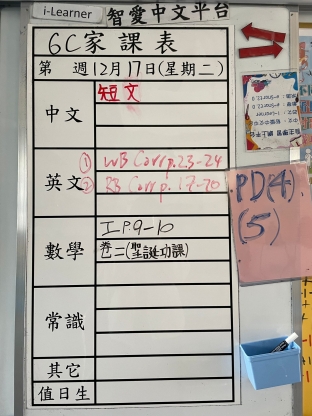 i-Learner 智愛中文平台
6C家課表
第 週12月17日(星期二)
中文 短文
英文 ① WB Corr p.23-24
② RB Corr p.17-20
數學 I-P.9-10
卷二(聖誕功課)
常識
其它
值日生
PD(4)
(5)